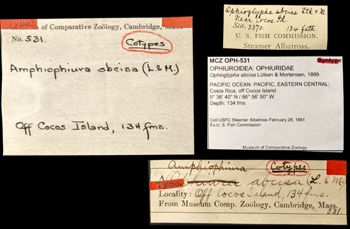 of Comparative Zoölogy, Cambridge, Mass.
No. 531.
Cotypes
Amphiophiura abcisa (L & M.)
Off Cocos Island, 134 fms.
Ophioglypha abcisa Ltk & M.
Near Cocos Id.
Sta. 3370. 134 fath.
U. S. FISH COMMISSION.
Steamer Albatross.
MCZ OPH-531
Syntype
OPHIUROIDEA: OPHIURIDAE
Ophioglypha abcisa Lütken & Mortensen, 1899
PACIFIC OCEAN: PACIFIC, EASTERN CENTRAL:
Costa Rica, off Cocos Island
5° 36' 40" N / 86° 56' 50" W
Depth: 134 fms
Coll:USFC Steamer Albatross February 28, 1891
Ex:U.S. Fish Commission
Museum of Comparative Zoology
Amphiophiura
Cotypes
abcisa (L. & M.)
Locality: Off Cocos Island, 134 fms.
From Museum Comp. Zoölogy, Cambridge, Mass.
531.